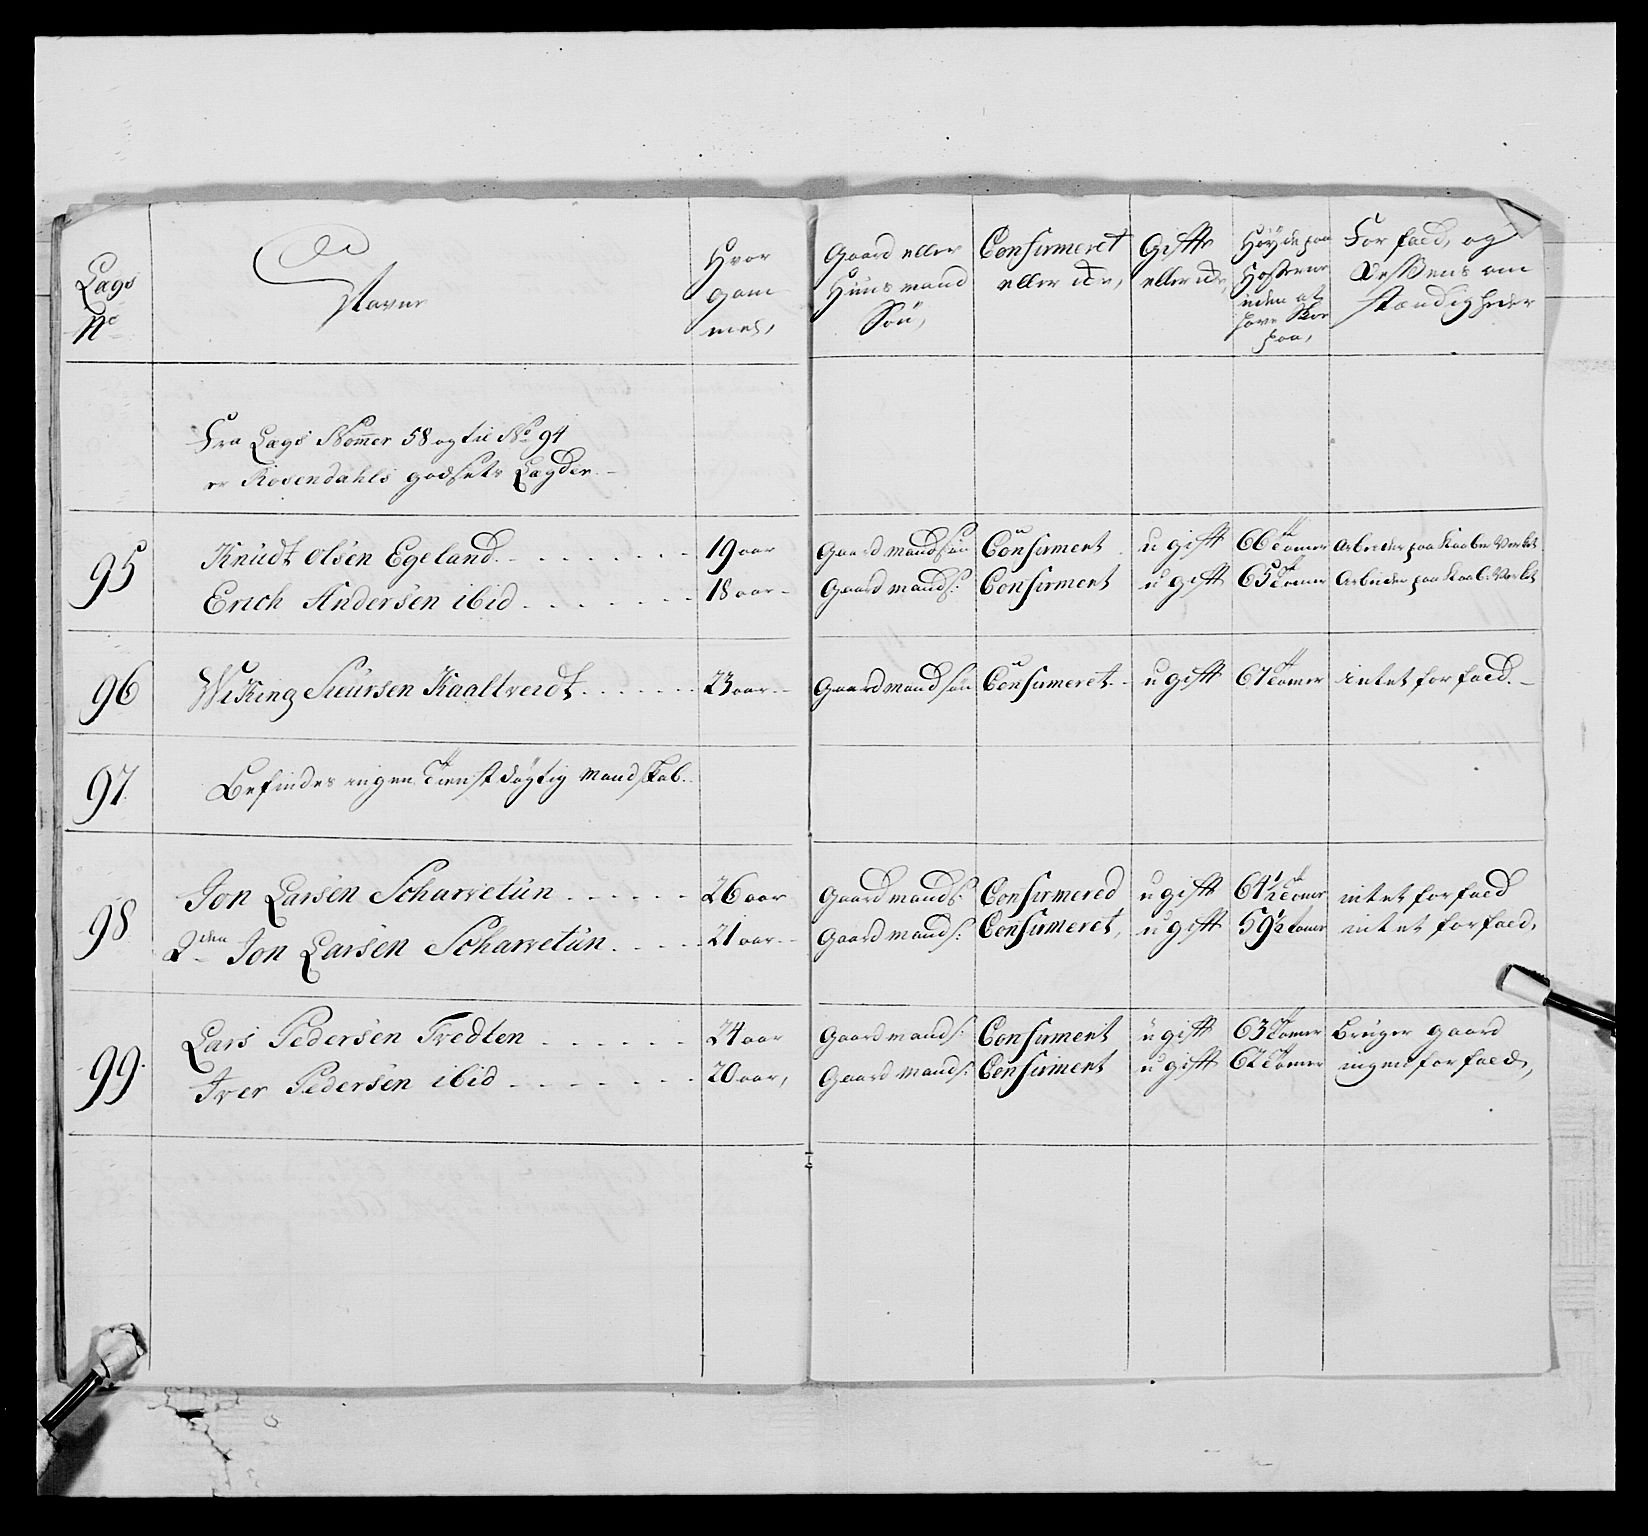 Lægs
No
Navne
Hvor
gam
mel,
Gaard eller
Huusmand
Søn,
Confirmeret
eller icke,
Gifft
eller icke,
Høyde paa
Hosterne
uden at
have Skoe
paa,
Forfald, og
Om
stændigheder
Fra Lægs Nommer 58 og til No 94
er Rosendahls godsets Lægder.
95 Knudt Olsen Egeland. 19 aar Gaardmandsøn Confirment ugifft 66 tomer Arbeider paa Kaaber Verket
Erich Andersen ibid 18 aar Gaardmands: Confirment ugifft 65 tomer Arbeider paa Kaab: Verket
96 Wiking Siursen Kaaltveidt 23 aar Gaardmandsøn Confirmeret ugifft 67 tomer intet forfald.
97. Befindes ingen Tienstdygtig Mandskab.
98 Jon Larsen Scharvetün 26 aar Gaardmands: Confirmered ugifft 64½ tomer intet forfald
2den Jon Larsen Scharvetün 21 aar Gaardmands: Confirmeret, ugifft 59½ tomer intet forfald,
99. Lars Pedersen Tredten 24 aar Gaardmands: Confirment ugifft 63 tomer Bruger gaard
Iver Pedersen ibid 20 aar, Gaardmands: Confirment ugifft 62 tomer ingen forfald,